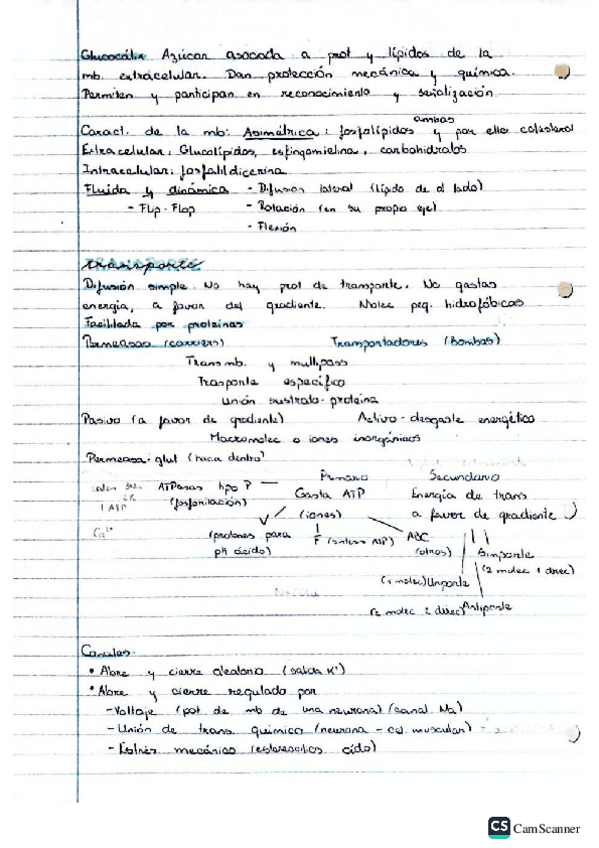 Glucocálix Azúcar asociada a prot y lípidos de la
mb. extracelular. Dan protección mecánica y química.
Permiten y participan en reconocimiento y señalización
ambas
Caract. de la mb: Asimétrica: fosfolípidos y por ello colesterol
Extracelular: Glucolípidos, esfingomielina, carbohidratos
Intracelular: fosfatildicerina
Fluida y dinámica - Difusión lateral (lípido de al lado)
- Flip-Flop - Rotación (en su propio eje)
- Flexión
transporte
Difusión simple. No hay prot de transporte. No gastas
energía, a favor del gradiente. Molec peq. hidrofóbicas
Facilitada por proteínas
Permeasas (carriers) Transportadores (Bombas)
Transmb. y multipass
Trasporte específico
Unión sustrato-proteína
Pasivo (a favor de gradiente) Activo - desgaste energético
Macromolec o iones inorgánicos
Permeasa-glut (hacia dentro)
Primario Secundario
ATPasas tipo P — Gasta ATP Energía de trans
(fosforilación) (iones) a favor de gradiente
1 ATP
Ca²⁺
V F (síntesis ATP) ABC
(protones para (otros) Simporte
pH ácido) (2 molec 1 direc)
(1 molec) Uniporte
(2 molec 2 direc) Antiporte
Canales
• Abre y cierre aleatorio (salida K⁺)
• Abre y cierre regulado por
- Voltaje (pot. de mb de una neurona) (canal Na)
- Unión de trans. químico (neurona - cel. muscular)
- Estrés mecánico (estereocilios oído)
CS CamScanner